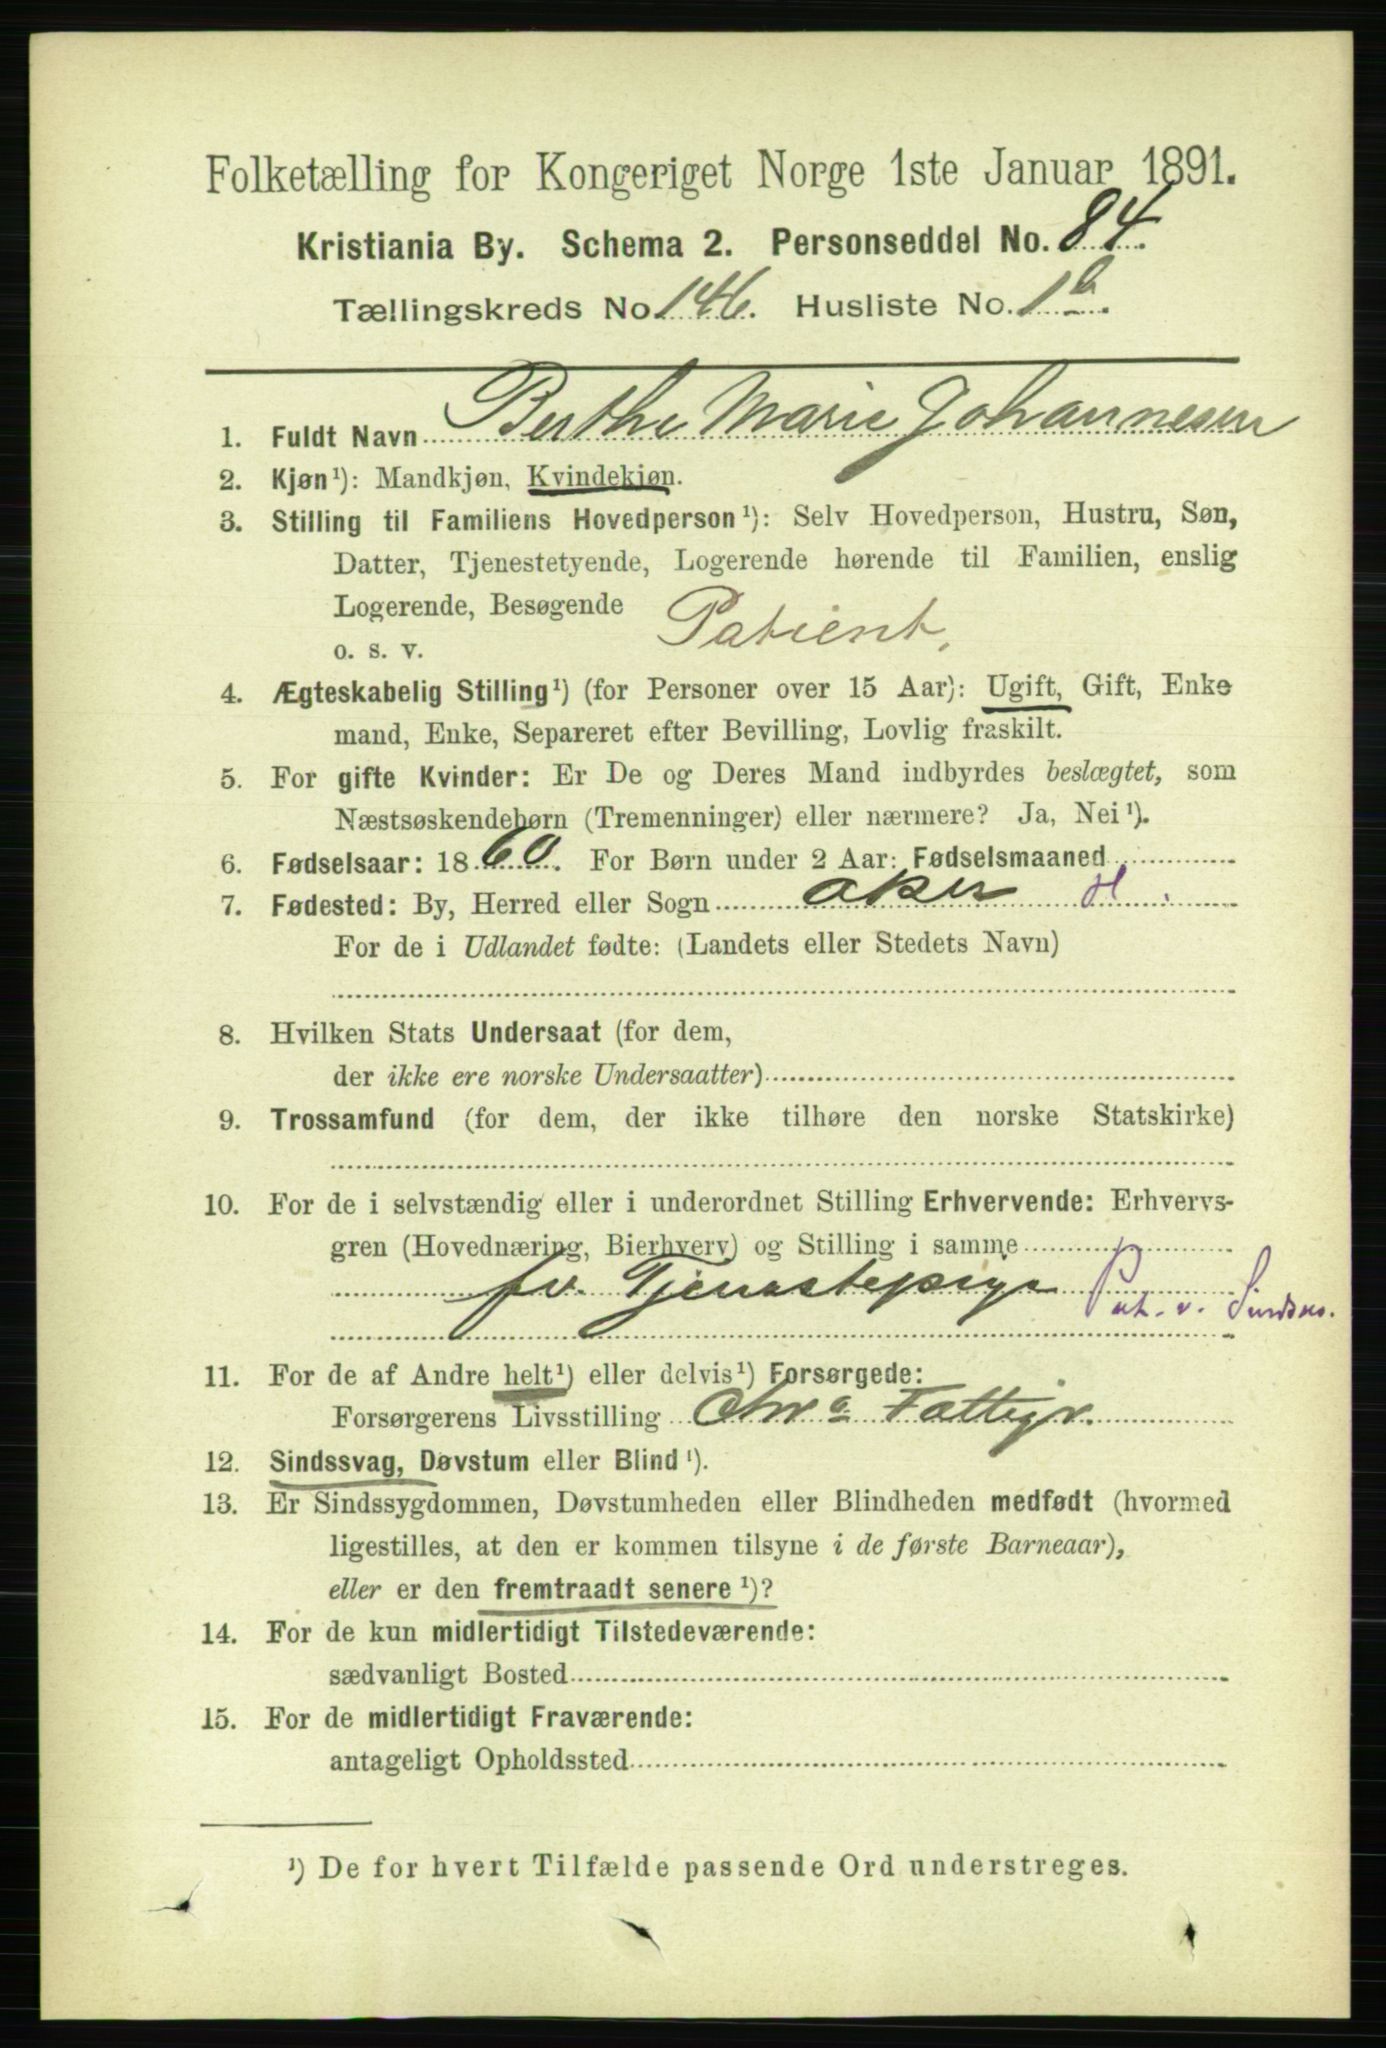 Folketælling for Kongeriget Norge 1ste Januar 1891.
Kristiania By. Schema 2. Personseddel No. 84.
Tællingskreds No 146. Husliste No. 1 b.
1. Fuldt Navn Berthe Marie Johannesen
2. Kjøn¹): Mandkjøn, Kvindekjøn.
3. Stilling til Familiens Hovedperson¹): Selv Hovedperson, Hustru, Søn,
Datter, Tjenestetyende, Logerende hørende til Familien, enslig
Logerende, Besøgende
o. s. v. Patient.
4. Ægteskabelig Stilling¹) (for Personer over 15 Aar): Ugift, Gift, Enke
mand, Enke, Separeret efter Bevilling, Lovlig fraskilt.
5. For gifte Kvinder: Er De og Deres Mand indbyrdes beslægtet, som
Næstsøskendebørn (Tremenninger) eller nærmere? Ja, Nei¹).
6. Fødselsaar: 1860. For Børn under 2 Aar: Fødselsmaaned
7. Fødested: By, Herred eller Sogn Aker H.
For de i Udlandet fødte: (Landets eller Stedets Navn)
8. Hvilken Stats Undersaat (for dem,
der ikke ere norske Undersaatter)
9. Trossamfund (for dem, der ikke tilhøre den norske Statskirke)
10. For de i selvstændig eller i underordnet Stilling Erhvervende: Erhvervs-
gren (Hovednæring, Bierhverv) og Stilling i samme
fv. Tjenestepige Pat. v. Sindss.
11. For de af Andre helt¹) eller delvis¹) Forsørgede:
Forsørgerens Livsstilling Chr a Fattigv.
12. Sindssvag, Døvstum eller Blind¹).
13. Er Sindssygdommen, Døvstumheden eller Blindheden medfødt (hvormed
ligestilles, at den er kommen tilsyne i de første Barneaar),
eller er den fremtraadt senere¹)?
14. For de kun midlertidigt Tilstedeværende:
sædvanligt Bosted
15. For de midlertidigt Fraværende:
antageligt Opholdssted
¹) De for hvert Tilfælde passende Ord understreges.